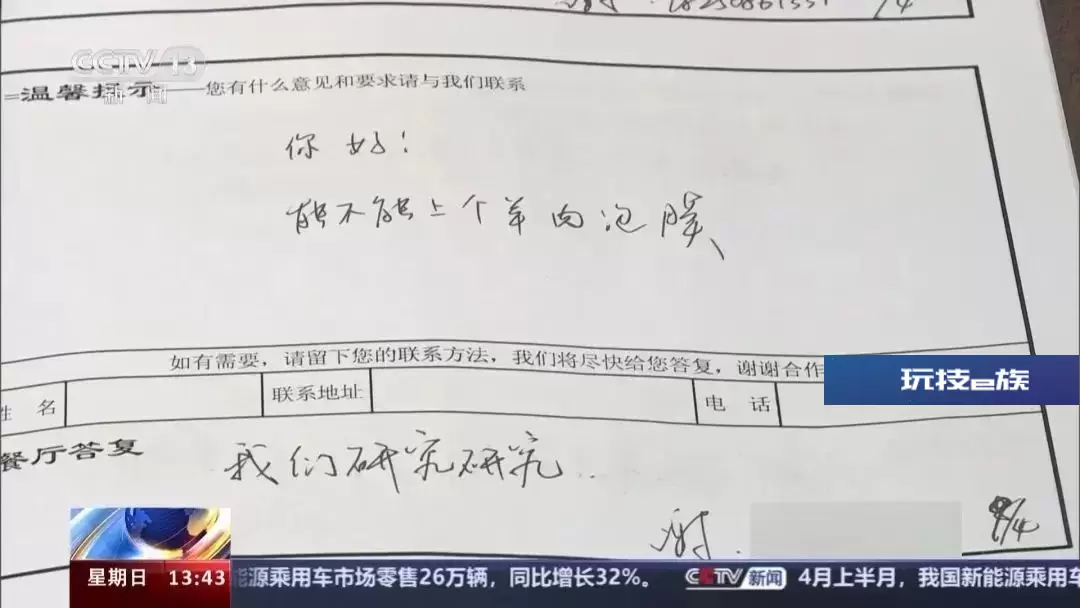 CCTV 13
新闻
温馨提示——您有什么意见和要求请与我们联系
你好！
能不能上个羊肉泡膜
如有需要，请留下您的联系方法，我们将尽快给您答复，谢谢合作
姓 名
联系地址
电 话
玩技e族
餐厅答复
我们研究研究..
谢.
9/4
星期日 13:43
能源乘用车市场零售26万辆，同比增长32%。 CCTV 新闻 4月上半月，我国新能源乘用车